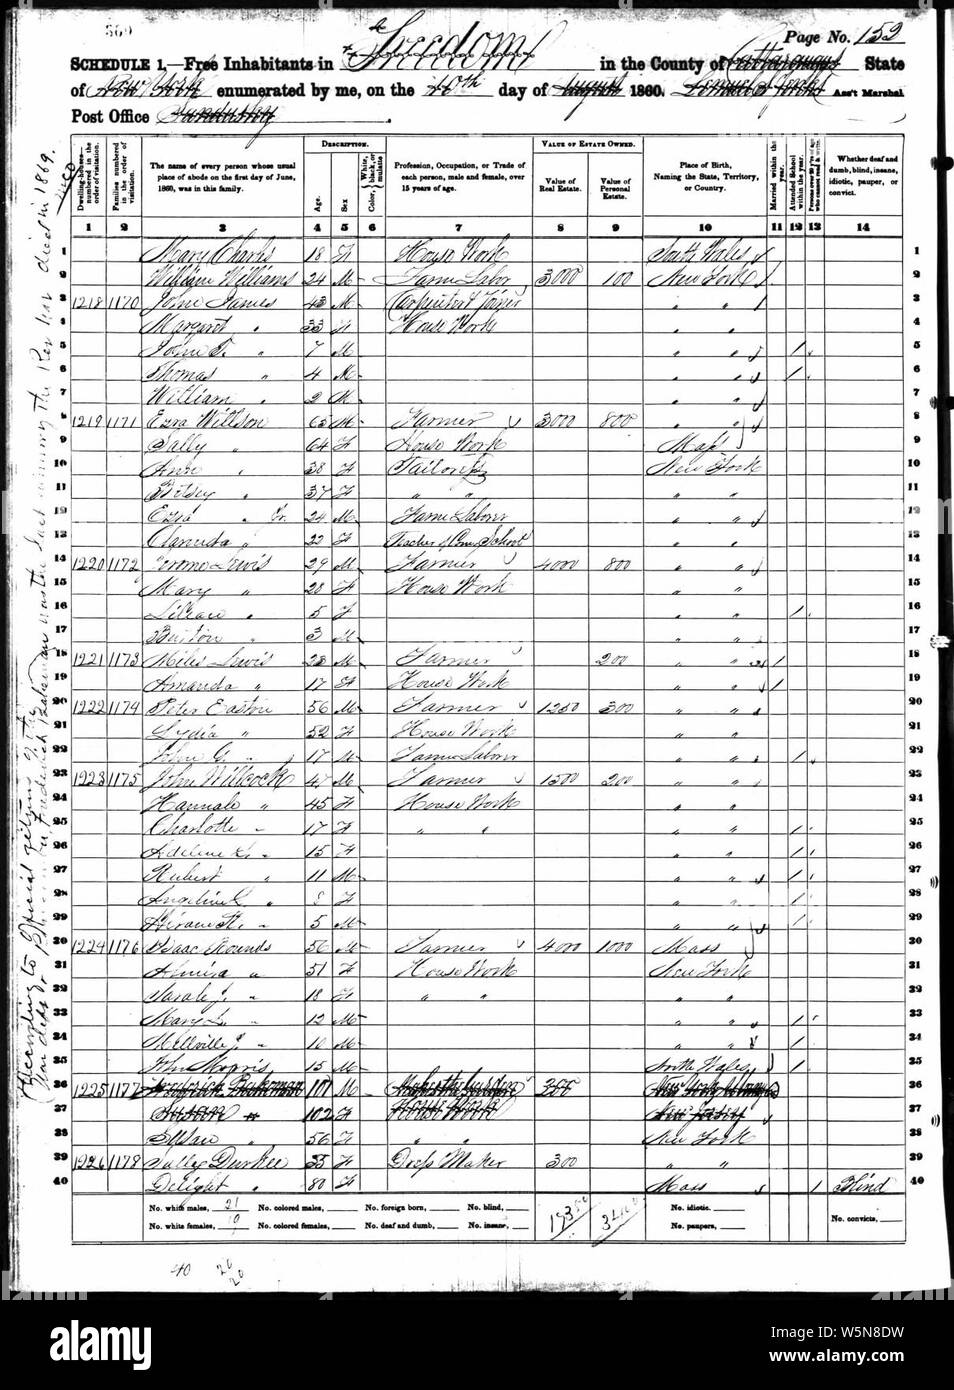 Page No. 152
SCHEDULE 1.—Free Inhabitants in Freedom in the County of Cattaraugus State
of New York enumerated by me, on the 10th day of August 1860. Ass't Marshal
Post Office Sandusky
DESCRIPTION. VALUE OF ESTATE OWNED.
Dwelling-houses—numbered in the order of visitation.
Families numbered in the order of visitation.
The name of every person whose usual place of abode on the first day of June, 1860, was in this family.
Age. Sex
Color, White, black, or mulatto
Profession, Occupation, or Trade of each person, male and female, over 15 years of age.
Value of Real Estate. Value of Personal Estate.
Place of Birth, Naming the State, Territory, or Country.
Married within the year.
Attended School within the year.
Whether deaf and dumb, blind, insane, idiotic, pauper, or convict.
1 2 3 4 5 6 7 8 9 10 11 12 13 14
1 Mary Charls 18 F House Work South Wales 1
2 William Williams 24 M Farm Labor 3000 100 New York 2
3 1218 1170 John James 43 M Carpenter & Joiner " " 3
4 Margaret " 33 F House Work " " 4
5 John T. " 7 M " " 1 5
6 Thomas " 4 M " " 1 6
7 William " 2 M " " 7
8 1219 1171 Ezra Willson 65 M Farmer 3000 800 " " 8
9 Sally " 64 F House Work Mass 9
10 Ann " 38 F New York 10
11 Betsey " 37 F " " " " 11
12 Ezra " Jr. 24 M Farm Laborer " " 12
13 " 22 F Teacher Com School " " 13
14 1220 1172 Jerome Lewis 29 M Farmer 4000 800 " " 14
15 Mary " 28 F House Work " " 15
16 Lillian " 5 F 1 16
17 Burton " 3 M " " 17
18 1221 1173 Miles Lewis 23 M Farmer 200 " " 1 18
19 Amanda " 17 F House Work " " 1 19
20 1222 1174 Peter Easton 56 M Farmer 1250 300 " " 20
21 Lydia " 52 F House Work " " 21
22 John G. " 17 M Farm Laborer " " 1 22
23 1223 1175 John Willcock 47 M Farmer 1500 200 " " 23
24 Hannah " 45 F House Work " " 24
25 Charlotte " 17 F " " " " 1 25
26 Adeline " 15 F " " 1 26
27 Robert " 11 M " " 1 27
28 Angeline " 8 F " " 1 28
29 Hiram H. " 5 M " " 1 29
30 1224 1176 Isaac Rounds 56 M Farmer 4000 1000 Mass 30
31 Almira " 51 F House Work New York 31
32 Sarah J. " 18 F " " " " 32
33 Mary L. " 12 M " " 1 33
34 Mellville J. " 10 M " " 1 34
35 John Morris 15 M South Wales 1 35
36 1225 1177 Frederick Bakeman 101 M 300 36
37 Susan " 102 F House Work New Jersey 37
38 Susan " 56 F " " New York 38
39 1226 1178 Sally Durkee 35 F Dress Maker 300 " " 39
40 Delight " 80 F Mass 1 Blind 40
No. white males, 21 No. colored males, No. foreign born, No. blind, No. idiotic,
No. white females, 19 No. colored females, No. deaf and dumb, No. insane, No. paupers, No. convicts,
40 20
20
According to Official
Frederick Bakeman was the last surviving the Rev. War died in 1869.
alamy
Image ID: W5N8DW
www.alamy.com